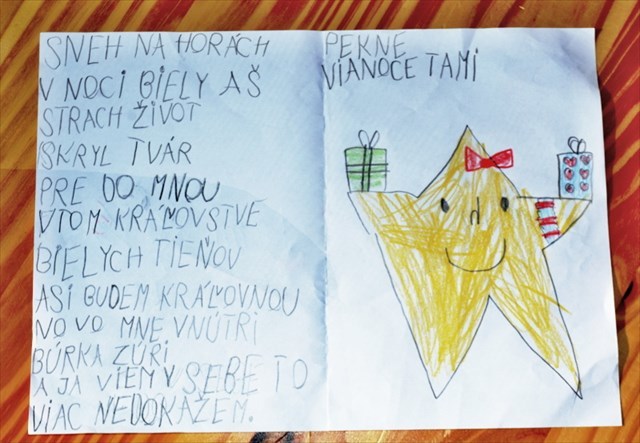 SNEH NA HORÁCH
V NOCI BIELY AŠ
STRACH ŽIVOT
SKRYL TVÁR
PRE DO MNOU
VTOM KRÁĽOVSTVE
BIELYCH TIEŇOV
ASI BUDEM KRÁĽOVNOU
NO VO MNE VNÚTRI
BÚRKA ZÚRI
A JA VIEM V SEBE TO
VIAC NEDOKÁŽEM.
PEKNE
VIANOCE TAMI